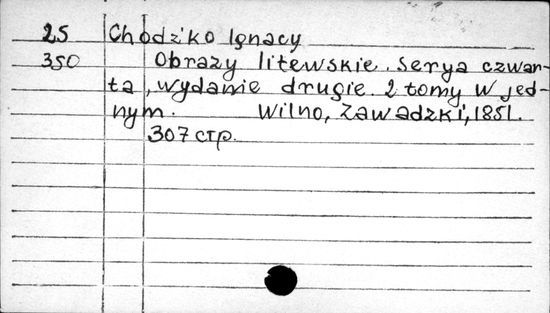 25 Chodz'ko Ignacy
350 Obrazy litewskie. Serya czwar-
ta, wydanie drugie. 2 tomy w jed-
nym. Wilno, Zawadzki, 1851.
307 стр.